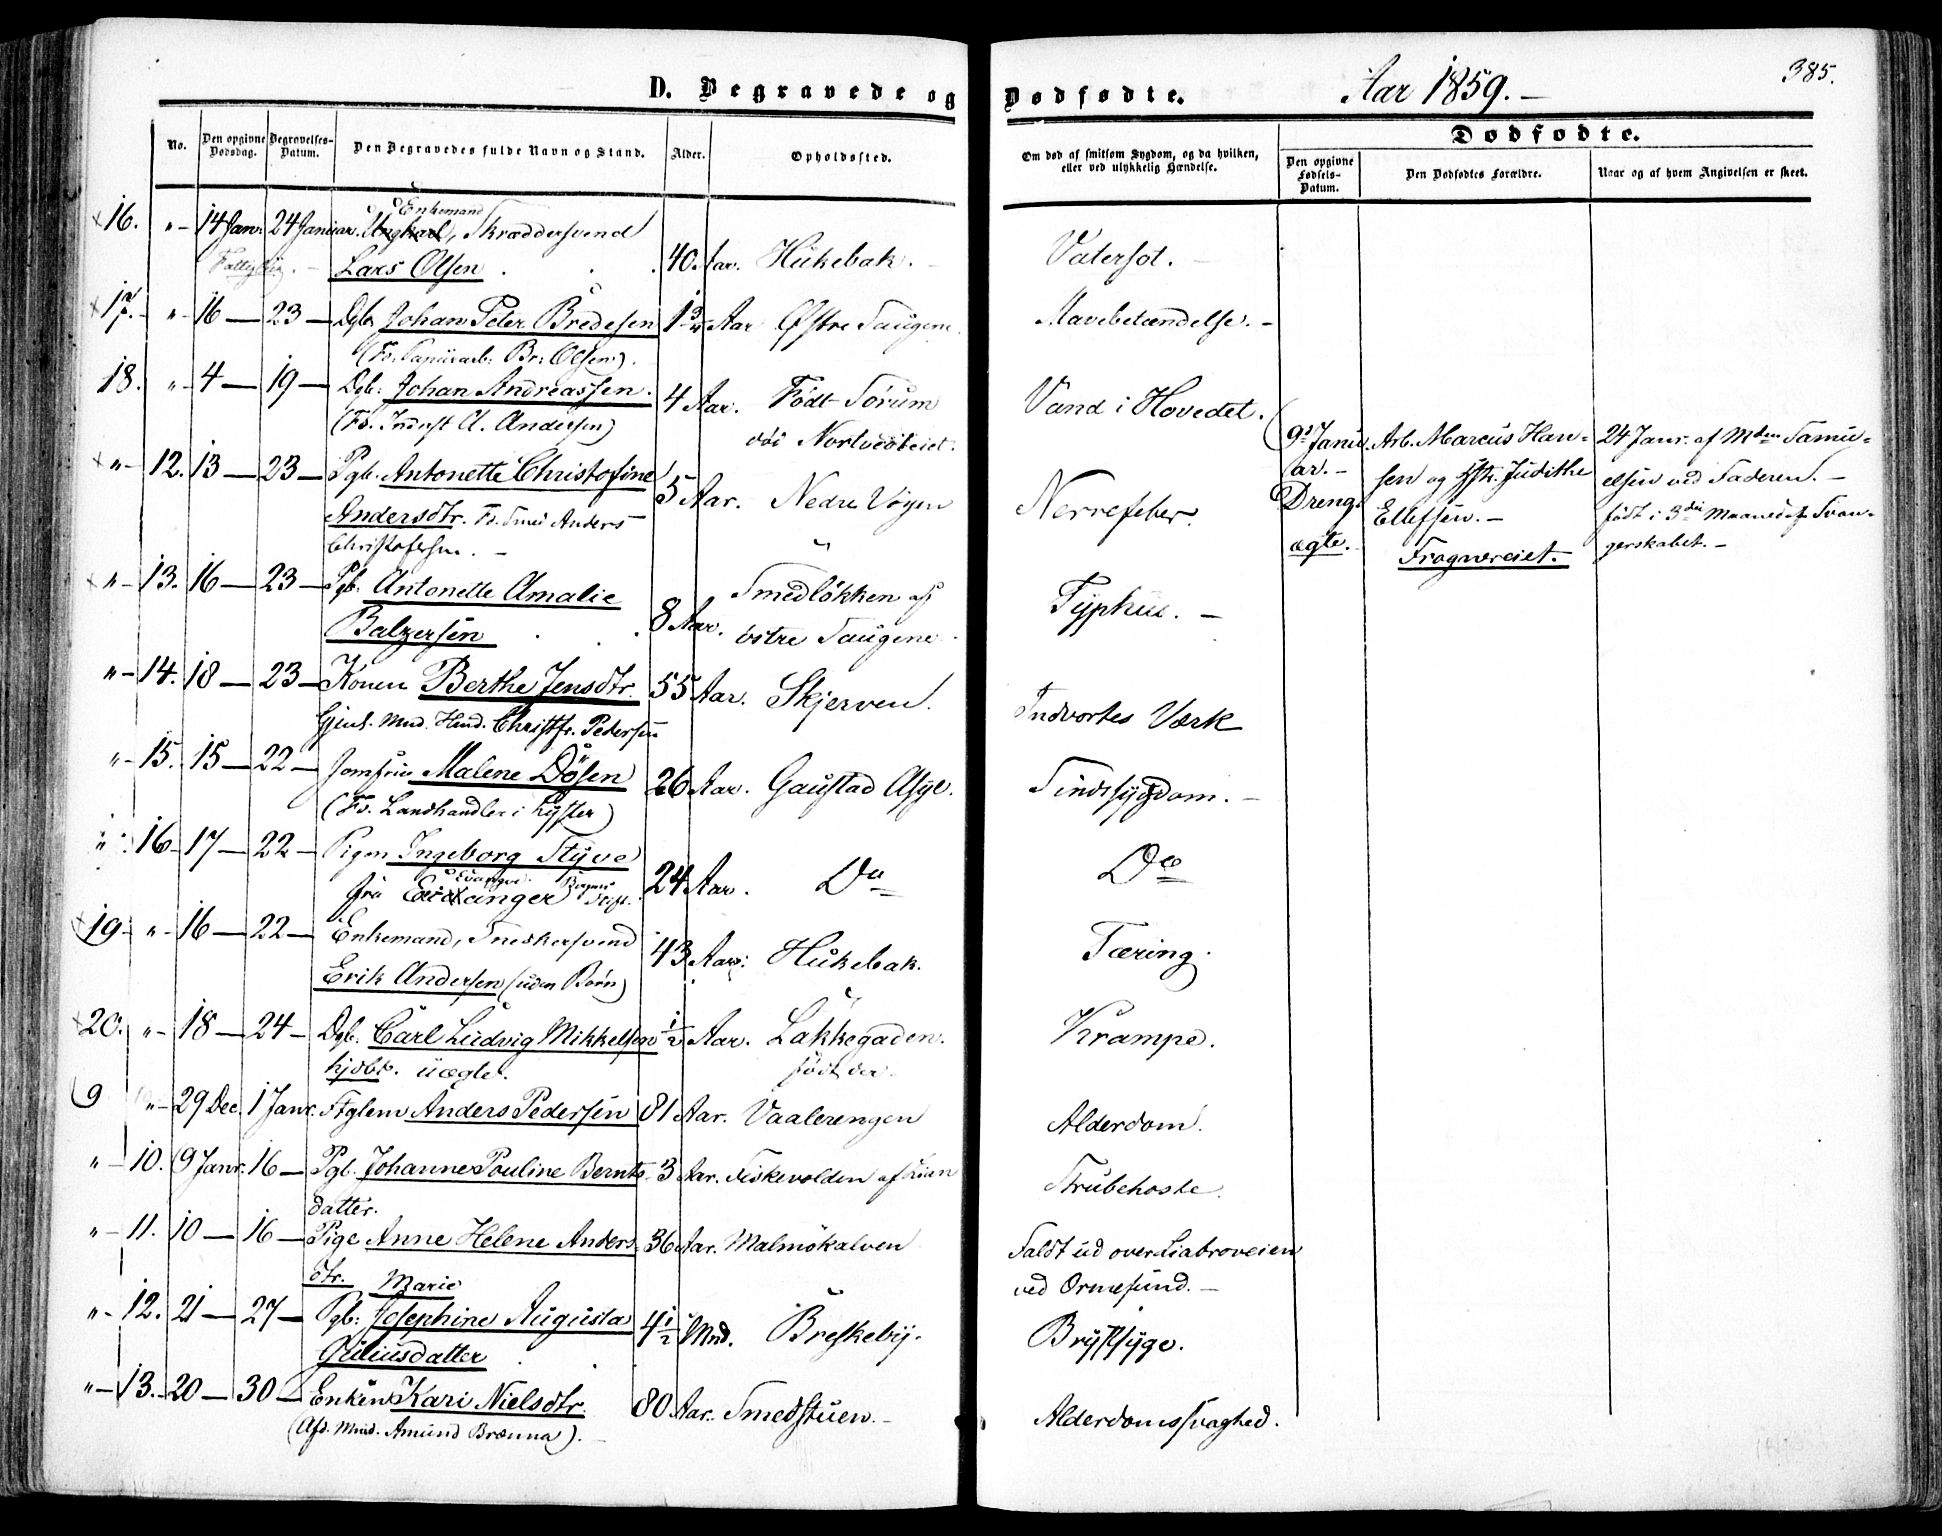 D. Begravede og Dødfødte. Aar 1859. 385.
Dødfødte.
No. Den opgivne Dødsdag. Begravelses-Datum. Den Begravedes fulde Navn og Stand. Alder. Opholdssted. Om død af smitsom Sygdom, og da hvilken, eller ved ulykkelig Hændelse. Den opgivne Fødsels-Datum. Den Dødfødtes Forældre. Naar og af hvem Angivelsen er skeet.
Enkemand
16. " 14 Jan. 24 Januar. Ungkarl, Skræddersvend
Lars Olsen 40 Aar. Hukebak. Vatersot.
17. " 16 — 23 — Dgb. Johan Peter Bredesen 1 Aar Østre Saugene. Mavebetændelse. —
(Fs. Papirarb. Br. Olsen).
18. " 4 — 19 — Dgb. Johan Andreassen. 4 Aar. Født Sørum Vand i Hovedet.
(Fs. Inderst A. Andersen)
" 12. 13 — 23 — Pgb. Antonette Christofine 5 Aar. Nedre Vøyen Nervefeber.
Andersdtr. Fs. Smed Anders
Christofersen. —
9de Janu- Arb. Marcus Han- 24 Janr. af Mdm Samu-
ar. — sen og Hstr. Judithe elsen ved Faderen. —
Dreng Ellefsen. — født i 3die Maaned af Svan-
ægte. Frognereiet. — gerskabet. —
" 13. 16 — 23 — Pgb. Antonette Amalie Smedløkken af
Balzersen 8 Aar. østre Saugene. Typhus. —
" 14. 18 — 23 — Konen Berthe Jensdtr. 55 Aar. Skjerven. Indvortes Værk
Gjenl. Md. Hmd. Christfr. Pedersen
" 15. 15 — 22 — Jomfru Malene Døsen 26 Aar. Gaustad Asyl. Sindssygdom. —
(Fs. Landhandler i Lyster)
" 16. 17 — 22 — Pigen Ingeborg Styve 24 Aar. Do Do
fra Evanger Bergens Stift.
19. " 16 — 22 — Enkemand, Snedkersvend 43 Aar. Hukebak. Tæring.
Erik Andersen (uden Børn)
20. " 18 — 24 — Dgb. Carl Ludvig Mikkelsen ½ Aar. Lakkegaden. Krampe.
uægte. født der.
9 " 29 Dec. 1 Janr. Anders Pedersen 81 Aar. Vaalerengen Alderdom.
" 10. 9 Janr. 16 — Pgb. Johanne Pouline Bernts- 3 Aar. Fiskevolden af Lian Strubehoste.
datter.
" 11. 10 — 16 — Pige Anne Helene Anders- 36 Aar. Malmøkalven Faldt ud over Liabroveien
dtr. ved Ormsund. —
Marie
" 12. 21 — 27 — Pgb. Josephine Augusta 4½ Mnd. Briskeby. Brystsyge.
Juliusdatter
" 13. 20 — 30 — Enken Kari Nielsdtr. 80 Aar. Smedstuen. — Alderdomssvaghed.
(Afd. Mand. Amund Brænna). —